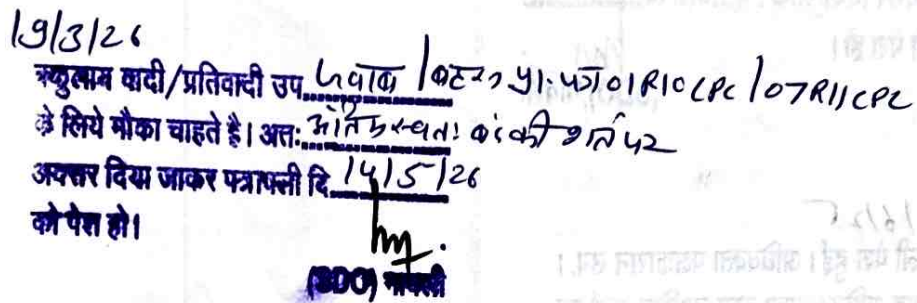 19/3/26
वकुलाय वादी/प्रतिवादी उप. जवाब/बहस प्रा. पत्र O1R10CPC/O7R11CPC
के लिये मौका चाहते है। अतः अंतिम स्वतः बंद की शर्त पर
अवसर दिया जाकर पत्रावली दि. 14/5/26
को पेश हो।
(SDO) मावली